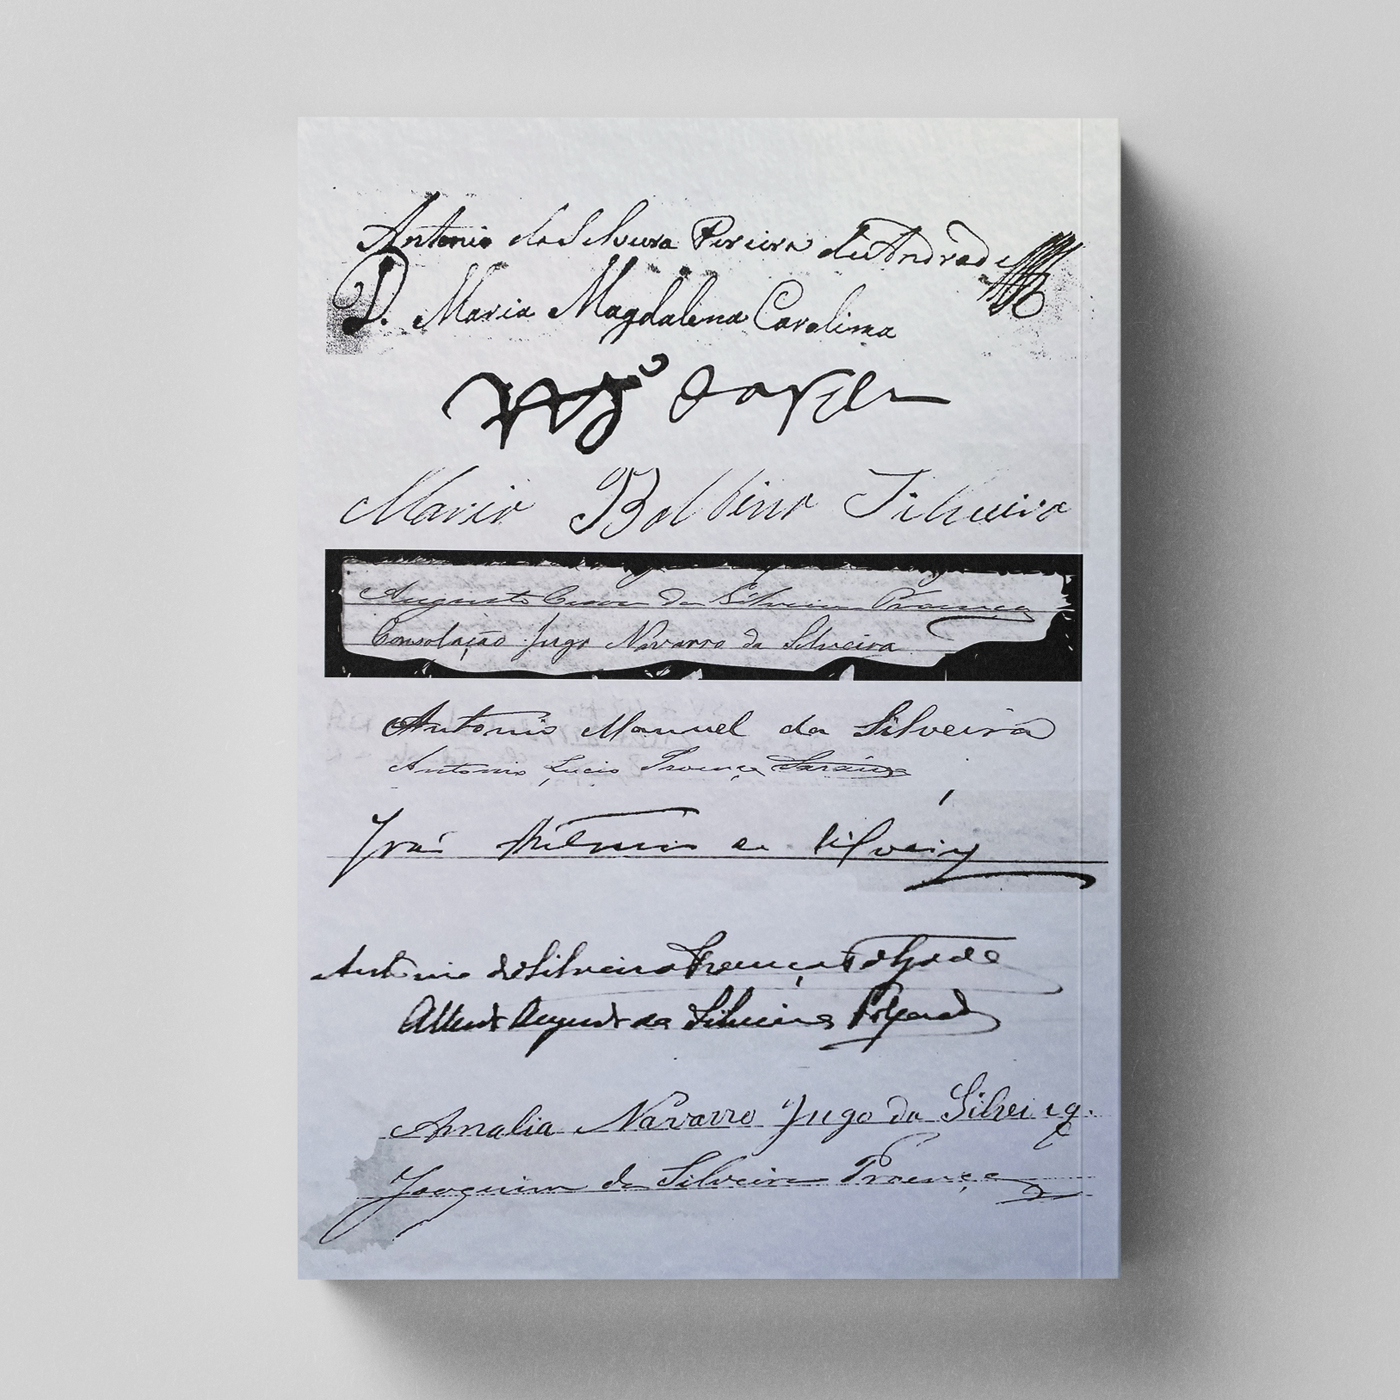 Antonio da Silveira Pereira de Andrade
D. Maria Magdalena Carolina
Maria Balbina Silveira
Augusto Cesar da Silveira Proença
Consolação Jugo Navarro da Silveira
Antonio Manuel da Silveira
Antonio Lucio Proença Saraiva
José Antonio da Silveira
Antonio da Silveira Proença Folgado
Alberto Augusto da Silveira Folgado
Amalia Navarro Jugo da Silveira
Joaquim da Silveira Proença